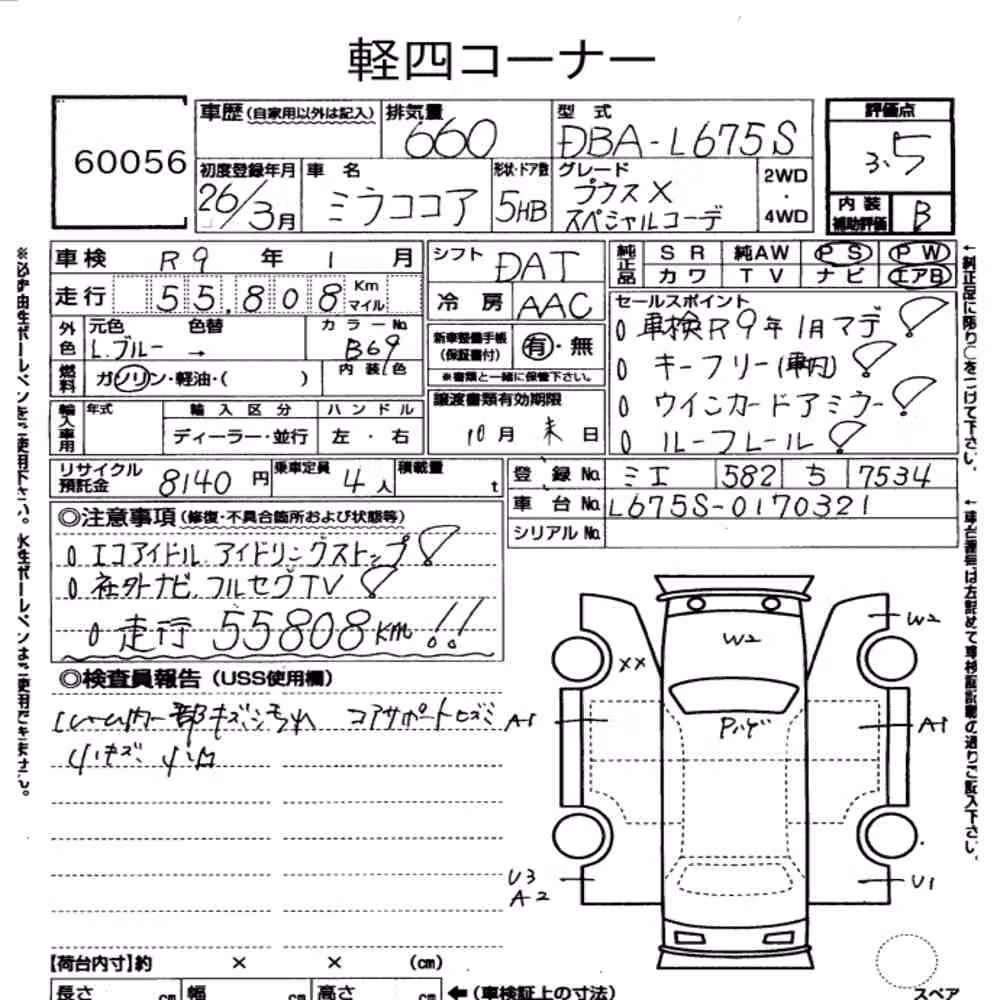 軽四コーナー
60056
車歴(自家用以外は記入)
排気量
660
型式
DBA-L675S
評価点
3.5
初度登録年月
26/3月
車名
ミラココア
形状・ドア数
5HB
グレード
プラスX
スペシャルコーデ
2WD
・
4WD
内装
補助評価
B
車検 R9年 1月
シフト
DAT
純正品
SR 純AW PS PW
カワ TV ナビ エアB
走行 55,808 Km マイル
冷房 AAC
セールスポイント
車検R9年1月マデ
外色
元色 色替
L.ブルー →
カラーNo.
B69
新車整備手帳
(保証書付)
有・無
※書類と一緒に保管下さい。
キーフリー(車内)
燃料
ガソリン・軽油・( )
内装色
譲渡書類有効期限
10月 末日
ウインカードアミラー
輸入車用
年式
輸入区分
ハンドル
ディーラー・並行
左・右
ルーフレール
リサイクル
預託金
8140円
乗車定員
4人
積載量
t
登録No. ミエ 582 ち 7534
車台No. L675S-0170321
シリアルNo.
◎注意事項(修復・不具合箇所および状態等)
エコアイドル.アイドリングストップ
社外ナビ.フルセグTV
走行 55808Km!!
◎検査員報告(USS使用欄)
コアサポート
小キズ 小凹
W2
W2
XX
A1
Pハゲ
A1
U3
A2
U1
【荷台内寸】約 × × (cm)
長さ cm 幅 cm 高さ cm
←(車検証上の寸法)
スペア
※必ず油性ボールペンをご使用下さい。水性ボールペンはご使用できません。
←純正品に限り○をつけて下さい。
←車台番号は左詰めで車検証記載の通りご記入下さい。